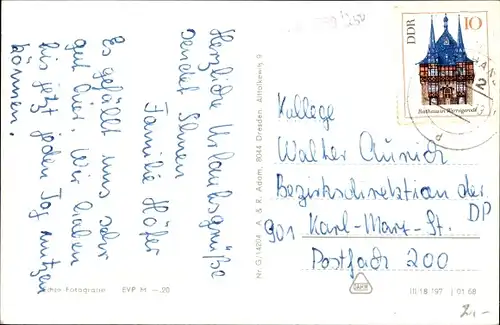 Herzliche Urlaubsgrüße
sendet Ihnen
Familie Höfer
Es gefällt uns sehr
gut hier. Wir haben
bis jetzt jeden Tag nutzen
können.
Nr. G/14204 A. & R. Adam, 8044 Dresden, Altkötkewitz 9
Echte Fotografie EVP M –.20
DDR
10
Rathaus in Wernigerode
Kollege
Walter
Bezirksdirektion der
DP
901 Karl-Marx-St.
Postfach 200
III 18 197 J 01 68
2,-